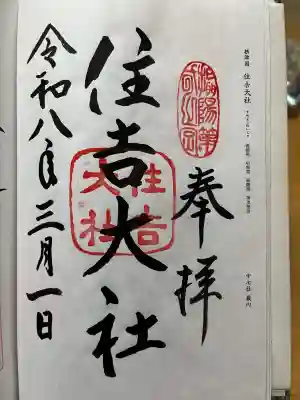 摂津国 住吉大社
中七社
奉拝
住吉大社
住吉大社
令和八年三月一日